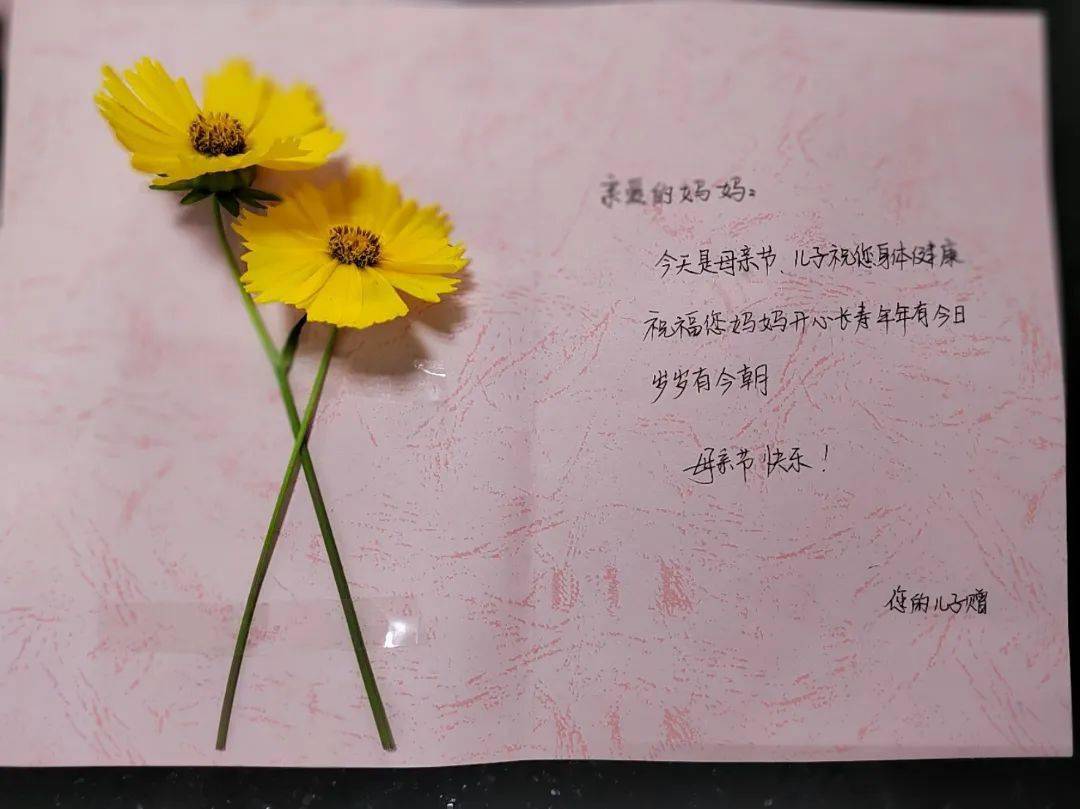 亲爱的妈妈:
今天是母亲节、儿子祝您身体健康
祝福您妈妈开心长青年年有今日
岁岁有今朝
母亲节快乐!
您的儿子赠